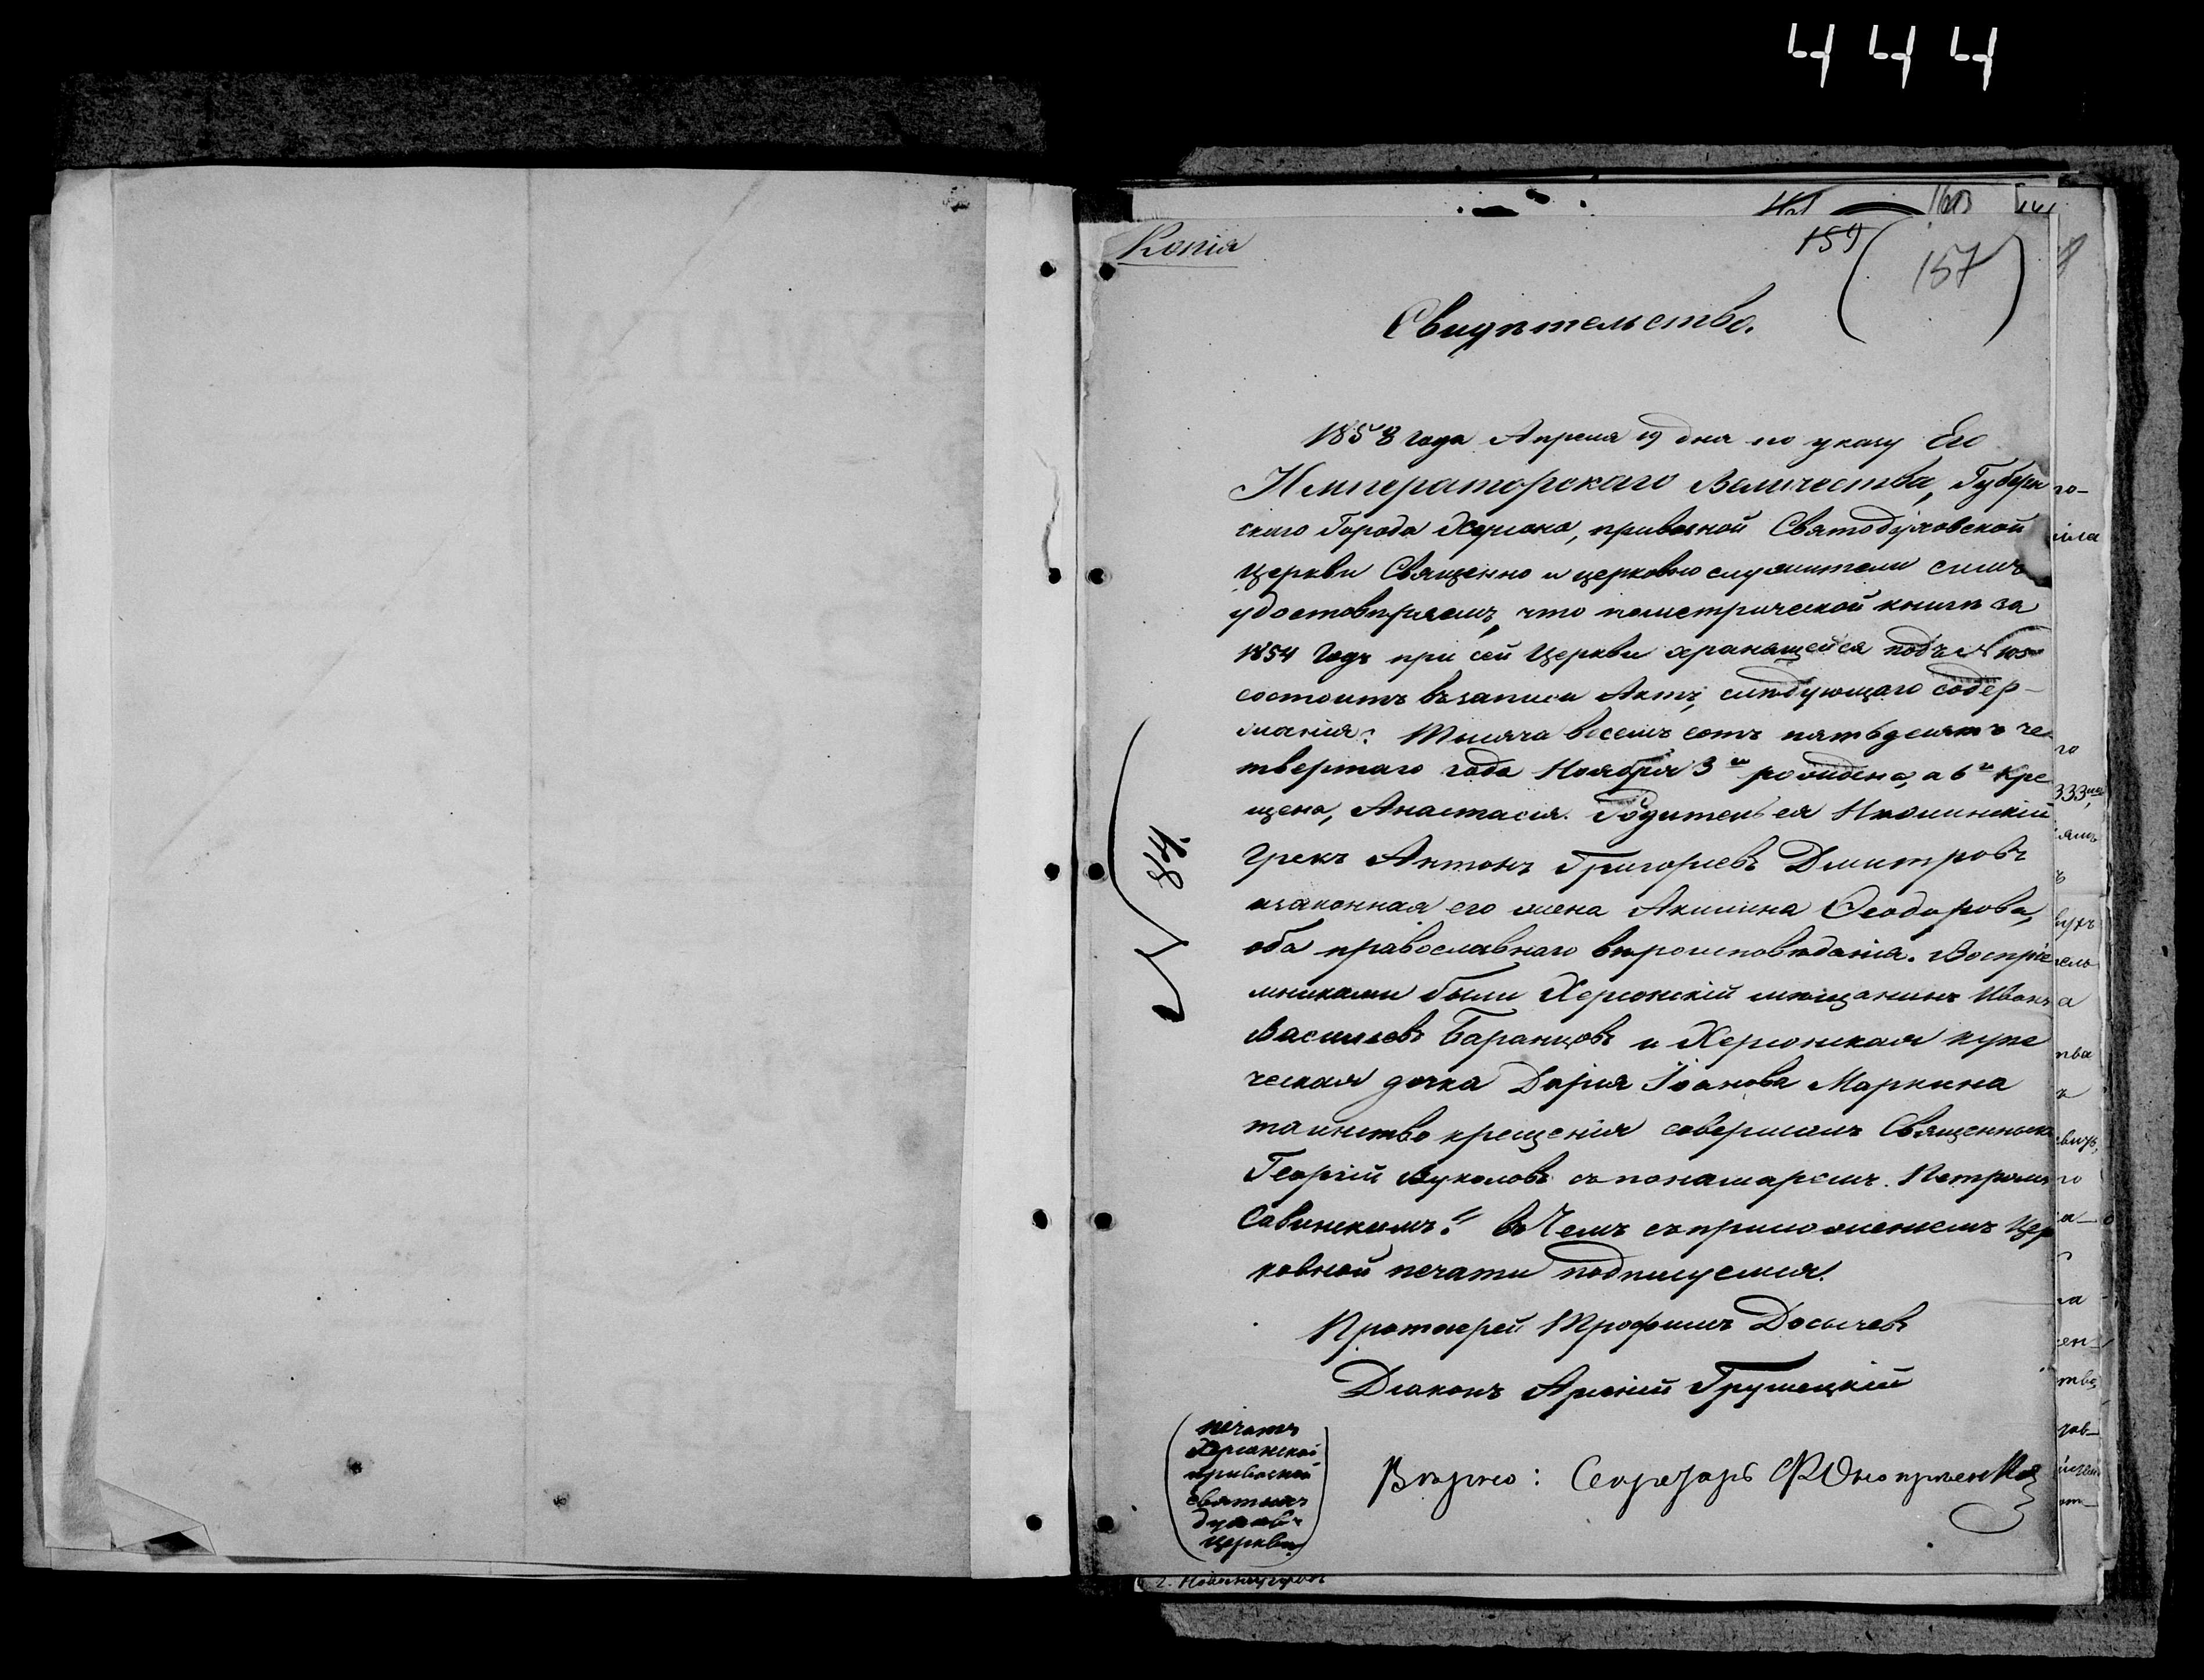 444
159
157
Копія
Свидѣтельство.
1858 года Апреля 19 дня по указу Его
Императорскаго Величества, Губерн
скаго Города Херсона, привозной Святодуховской
Церкви Священно и церковно служители симъ
удостовѣряемъ, что
1854 Годъ при сей Церкви хранящейся подъ N
состоитъ въ записи Актъ, слѣдующаго содер-
жанія: Тысяча восемь сотъ пятьдесятъ че
твертаго года Ноября 3го рождена, а 6го Кре
щена, Анастасія. Родитель ея Нѣжинскій
Грекъ Антонъ Григорьевъ Дмитровъ
изаконная его жена Акилина Ѳеодорова,
оба православнаго вѣроисповѣданія. Воспріе
мниками были Херсонскій мѣщанинъ Иванъ
Василіевъ Баранцовъ и Херсонская купе
ческая дочка Дарія Іоанова Маркина
таинство крещенія совершалъ Священникъ
Георгій Вуколовъ съ понамаремъ Петромъ
Савинскимъ." въ Чемъ съ приложеніемъ Цер
ковной печати подписуемся.
Протоіерей Трофимъ Досычевъ
Діаконъ Арсеній Грушецкій
Вѣрно: Секретарь
N 84.
печать
Херсонской
привозной
святыя
духов.
Церкви